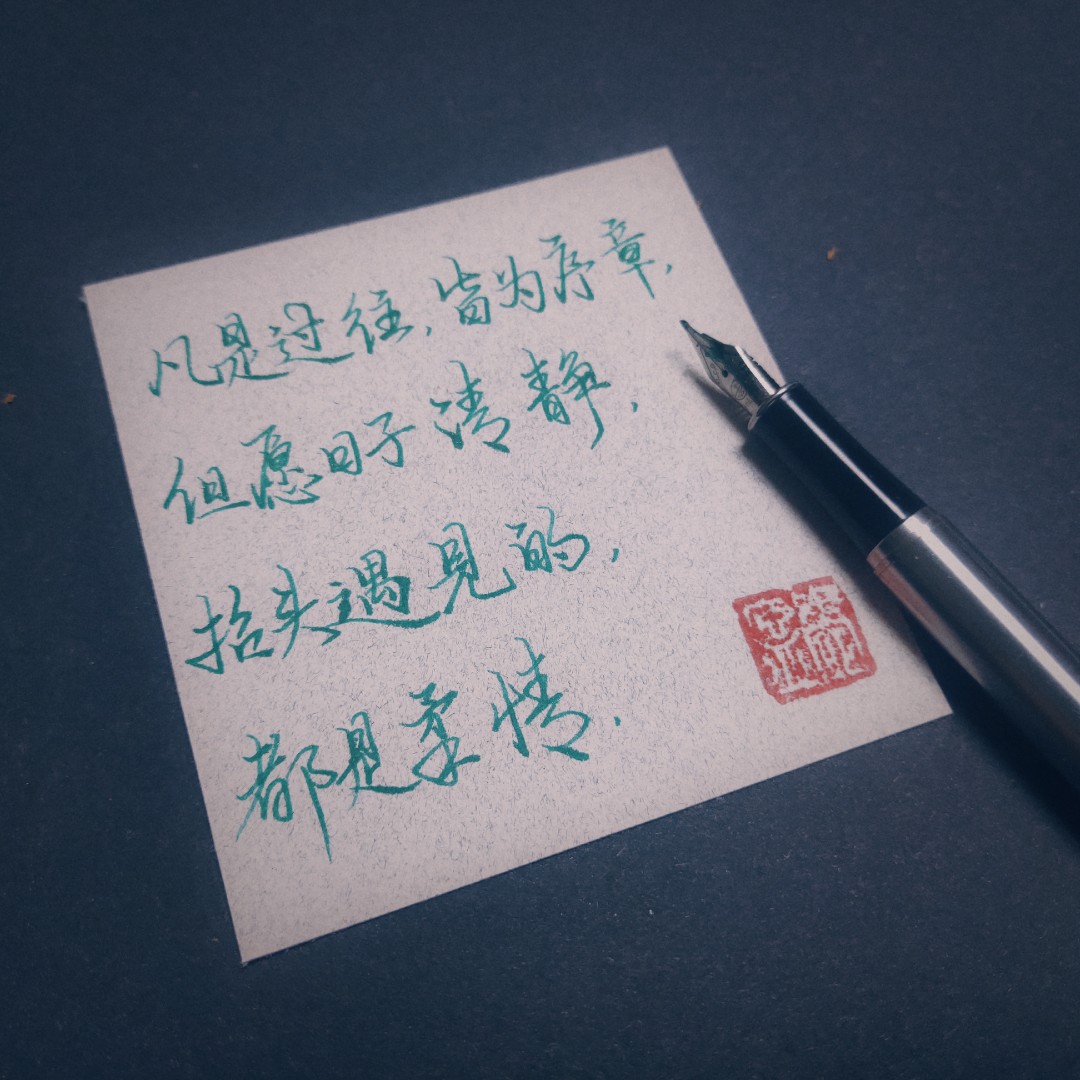 凡是过往，皆为序章，
但愿日子清静，
抬头遇见的，
都是柔情.